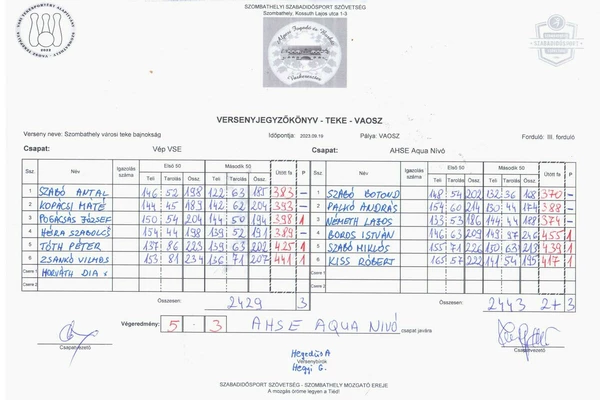 SZOMBATHELYI SZABADIDŐSPORT SZÖVETSÉG
Szombathely, Kossuth Lajos utca 1-3
SZABADIDŐSPORT
VERSENYJEGYZŐKÖNYV - TEKE - VAOSZ
Verseny neve: Szombathelyi városi teke bajnokság Időpontja: 2023.09.19 Pálya: VAOSZ Forduló: III. forduló
Csapat: Vép VSE Csapat: AHSE Aqua Nívó
Ssz. Név Igazolás száma Első 50 Második 50 Ütött fa P Ssz. Név Igazolás száma Első 50 Második 50 Ütött fa P
Teli Tarolás Össz. Teli Tarolás Össz. Teli Tarolás Össz. Teli Tarolás Össz.
1 SZABÓ ANTAL 146 52 198 122 63 185 383 – 1 SZABÓ BOTOND 148 54 202 132 36 168 370 –
2 KOPÁCSI MÁTÉ 144 45 189 142 62 204 393 – 2 PALKÓ ANDRÁS 154 60 214 130 44 174 388 –
3 POGÁCSÁS JÓZSEF 150 54 204 144 50 194 398 1 3 NÉMETH LAJOS 133 53 186 144 44 188 374 –
4 HÓRA SZABOLCS 154 44 198 139 52 191 389 – 4 BOROS ISTVÁN 146 63 209 149 97 246 455 1
5 TÓTH PÉTER 137 86 223 139 63 202 425 1 5 SZABÓ MIKLÓS 155 71 226 150 63 213 439 1
6 ZSANKÓ VILMOS 153 81 234 136 71 207 441 1 6 KISS RÓBERT 165 57 222 141 54 195 417 1
Csere 1 HORVÁTH DIA Csere 1
Csere 2 Csere 2
Összesen: 2429 3 Összesen: 2443 2+3
Végeredmény: 5 - 3 AHSE AQUA NIVÓ csapat javára
Csapatvezető Csapatvezető
Hegedüs A
Versenybírók
Hegyi G.
SZABADIDŐSPORT SZÖVETSÉG - SZOMBATHELY MOZGATÓ EREJE
A mozgás öröme legyen a Tiéd!